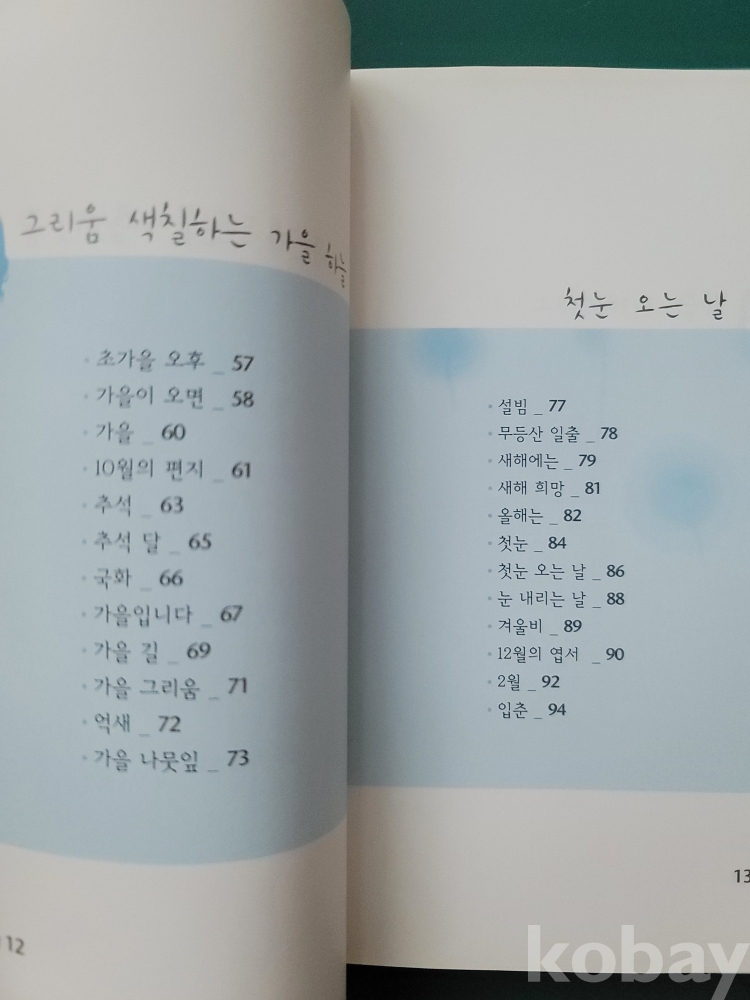 그리움 색칠하는 가을 하늘
· 초가을 오후 _ 57
· 가을이 오면 _ 58
· 가을 _ 60
· 10월의 편지 _ 61
· 추석 _ 63
· 추석 달 _ 65
· 국화 _ 66
· 가을입니다 _ 67
· 가을 길 _ 69
· 가을 그리움 _ 71
· 억새 _ 72
· 가을 나뭇잎 _ 73
12
첫눈 오는 날
· 설빔 _ 77
· 무등산 일출 _ 78
· 새해에는 _ 79
· 새해 희망 _ 81
· 올해는 _ 82
· 첫눈 _ 84
· 첫눈 오는 날 _ 86
· 눈 내리는 날 _ 88
· 겨울비 _ 89
· 12월의 엽서 _ 90
· 2월 _ 92
· 입춘 _ 94
13
kobay